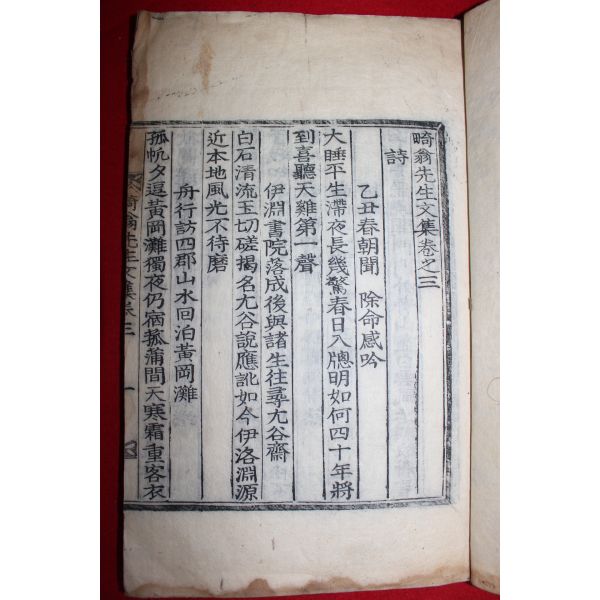 畸翁先生文集卷之三
詩
乙丑春朝聞 除命感吟
大睡平生滯夜長幾驚春日入牕明如何四十年將
到喜聽天雞第一聲
伊淵書院落成後與諸生往尋尢谷齋
白石清流玉切磋揭名尢谷說應訛如今伊洛淵源
近本地風光不待磨
舟行訪四郡山水回泊黃岡灘
孤帆夕逗黃岡灘獨夜仍宿菰蒲間天寒霜重客衣
畸翁先生文集卷三 一